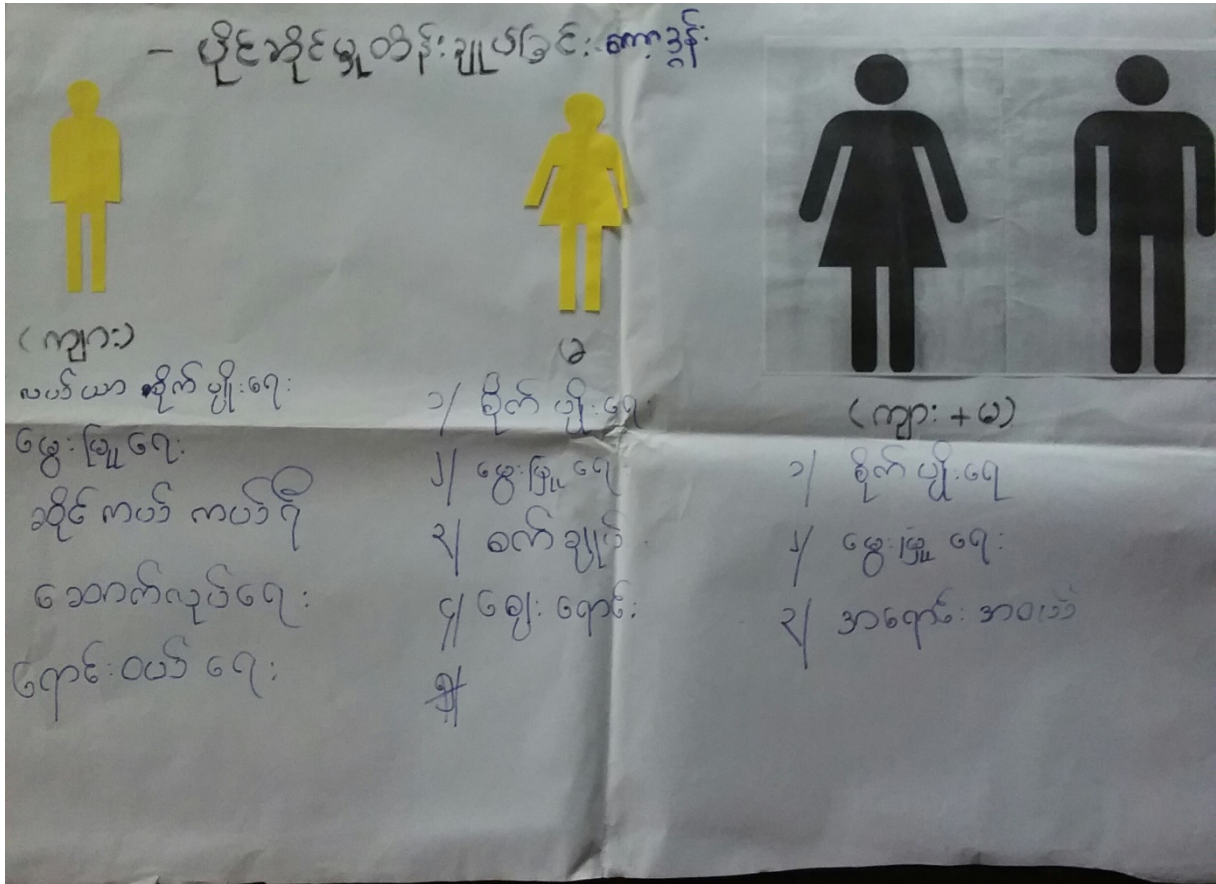 - ပိုင်ဆိုင်မှုထိန်းချုပ်ခြင်း ကော့ဒွန်း
(ကျား)
လယ်ယာ စိုက်ပျိုးရေး
မွေးမြူရေး
ဆိုင်ကယ် ကယ်ရီ
ဆောက်လုပ်ရေး
ရောင်းဝယ်ရေး
မ
၁/ စိုက်ပျိုးရေး
၂/ မွေးမြူရေ
၃/ စက်ချုပ်
၄/ ဈေးရောင်း
၅/
(ကျား + မ)
၁/ စိုက်ပျိုးရေ
၂/ မွေးမြူရေး
၃/ အရောင်းအဝယ်